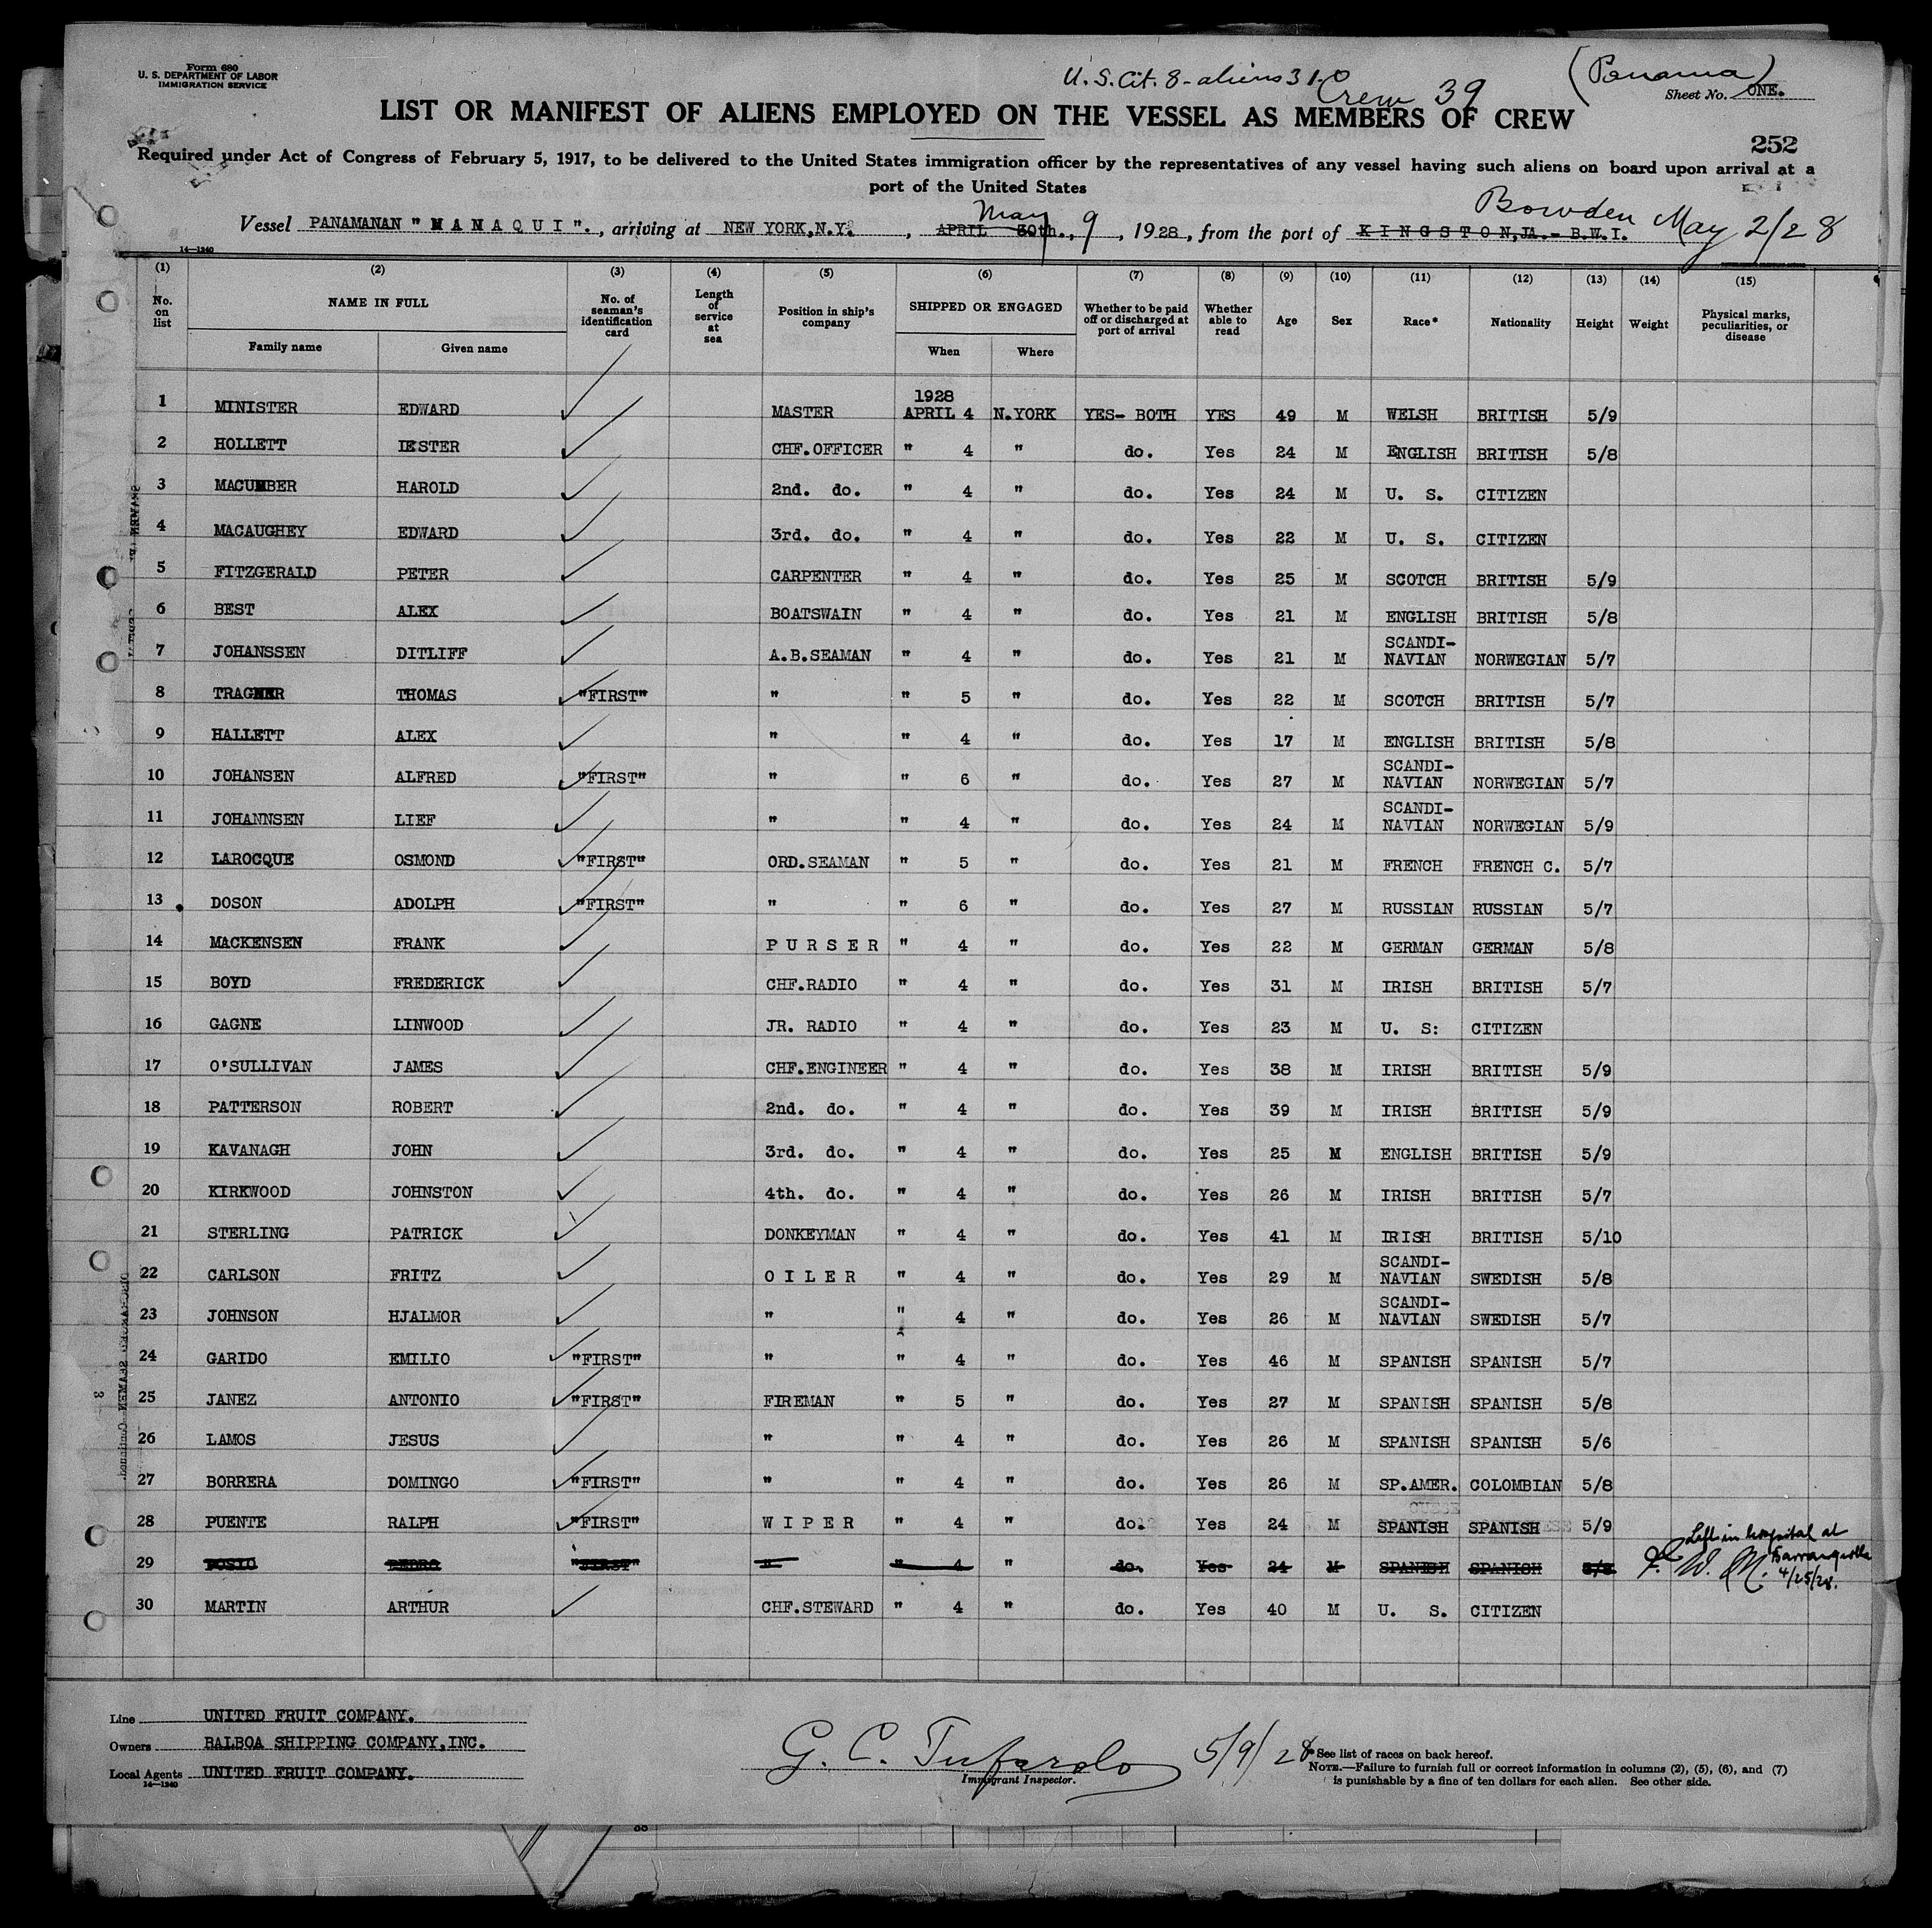 Form 680
U. S. DEPARTMENT OF LABOR
IMMIGRATION SERVICE
U. S. Cit. 8 - aliens 31-0
Crew 39
(Panama)
Sheet No. ONE.
LIST OR MANIFEST OF ALIENS EMPLOYED ON THE VESSEL AS MEMBERS OF CREW
252
Required under Act of Congress of February 5, 1917, to be delivered to the United States immigration officer by the representatives of any vessel having such aliens on board upon arrival at a
port of the United States
May Bowden May 2/28
Vessel PANAMANAN "MANAQUI"., arriving at NEW YORK,N.Y., APRIL 30th., 9, 1928, from the port of KINGSTON,JA.- B.W.I.
14—1240
(1) (2) (3) (4) (5) (6) (7) (8) (9) (10) (11) (12) (13) (14) (15)
No. on list NAME IN FULL No. of seaman's identification card Length of service at sea Position in ship's company SHIPPED OR ENGAGED Whether to be paid off or discharged at port of arrival Whether able to read Age Sex Race* Nationality Height Weight Physical marks, peculiarities, or disease
Family name Given name When Where
1928
1 MINISTER EDWARD MASTER APRIL 4 N.YORK YES- BOTH YES 49 M WELSH BRITISH 5/9
2 HOLLETT LESTER CHF.OFFICER " 4 " do. Yes 24 M ENGLISH BRITISH 5/8
3 MACUMBER HAROLD 2nd. do. " 4 " do. Yes 24 M U. S. CITIZEN
4 MACAUGHEY EDWARD 3rd. do. " 4 " do. Yes 22 M U. S. CITIZEN
5 FITZGERALD PETER CARPENTER " 4 " do. Yes 25 M SCOTCH BRITISH 5/9
6 BEST ALEX BOATSWAIN " 4 " do. Yes 21 M ENGLISH BRITISH 5/8
7 JOHANSSEN DITLIFF A.B.SEAMAN " 4 " do. Yes 21 M SCANDI-NAVIAN NORWEGIAN 5/7
8 THOMAS "FIRST" " " 5 " do. Yes 22 M SCOTCH BRITISH 5/7
9 HALLETT ALEX " " 4 " do. Yes 17 M ENGLISH BRITISH 5/8
10 JOHANSEN ALFRED "FIRST" " " 6 " do. Yes 27 M SCANDI-NAVIAN NORWEGIAN 5/7
11 JOHANNSEN LIEF " " 4 " do. Yes 24 M SCANDI-NAVIAN NORWEGIAN 5/9
12 LAROCQUE OSMOND "FIRST" ORD.SEAMAN " 5 " do. Yes 21 M FRENCH FRENCH C. 5/7
13 DOSON ADOLPH "FIRST" " " 6 " do. Yes 27 M RUSSIAN RUSSIAN 5/7
14 MACKENSEN FRANK PURSER " 4 " do. Yes 22 M GERMAN GERMAN 5/8
15 BOYD FREDERICK CHF.RADIO " 4 " do. Yes 31 M IRISH BRITISH 5/7
16 GAGNE LINWOOD JR. RADIO " 4 " do. Yes 23 M U. S: CITIZEN
17 O'SULLIVAN JAMES CHF.ENGINEER " 4 " do. Yes 38 M IRISH BRITISH 5/9
18 PATTERSON ROBERT 2nd. do. " 4 " do. Yes 39 M IRISH BRITISH 5/9
19 KAVANAGH JOHN 3rd. do. " 4 " do. Yes 25 M ENGLISH BRITISH 5/9
20 KIRKWOOD JOHNSTON 4th. do. " 4 " do. Yes 26 M IRISH BRITISH 5/7
21 STERLING PATRICK DONKEYMAN " 4 " do. Yes 41 M IRISH BRITISH 5/10
22 CARLSON FRITZ OILER " 4 " do. Yes 29 M SCANDI-NAVIAN SWEDISH 5/8
23 JOHNSON HJALMOR " " 4 " do. Yes 26 M SCANDI-NAVIAN SWEDISH 5/7
24 GARIDO EMILIO "FIRST" " " 4 " do. Yes 46 M SPANISH SPANISH 5/7
25 JANEZ ANTONIO "FIRST" FIREMAN " 5 " do. Yes 27 M SPANISH SPANISH 5/8
26 LAMOS JESUS " " 4 " do. Yes 26 M SPANISH SPANISH 5/6
27 BORRERA DOMINGO "FIRST" " " 4 " do. Yes 26 M SP.AMER. COLOMBIAN 5/8
28 PUENTE RALPH "FIRST" WIPER " 4 " do. Yes 24 M SPANISH SPANISH 5/9
29 PEDRO "FIRST" " " 4 " do. Yes 24 M SPANISH SPANISH Left in hospital at Barranquilla 4/25/28.
30 MARTIN ARTHUR CHF.STEWARD " 4 " do. Yes 40 M U. S. CITIZEN
Line UNITED FRUIT COMPANY.
Owners BALBOA SHIPPING COMPANY,INC.
Local Agents UNITED FRUIT COMPANY.
14—1240
G. C. Tufarolo 5/9/28
Immigrant Inspector.
*See list of races on back hereof.
NOTE.—Failure to furnish full or correct information in columns (2), (5), (6), and (7)
is punishable by a fine of ten dollars for each alien. See other side.